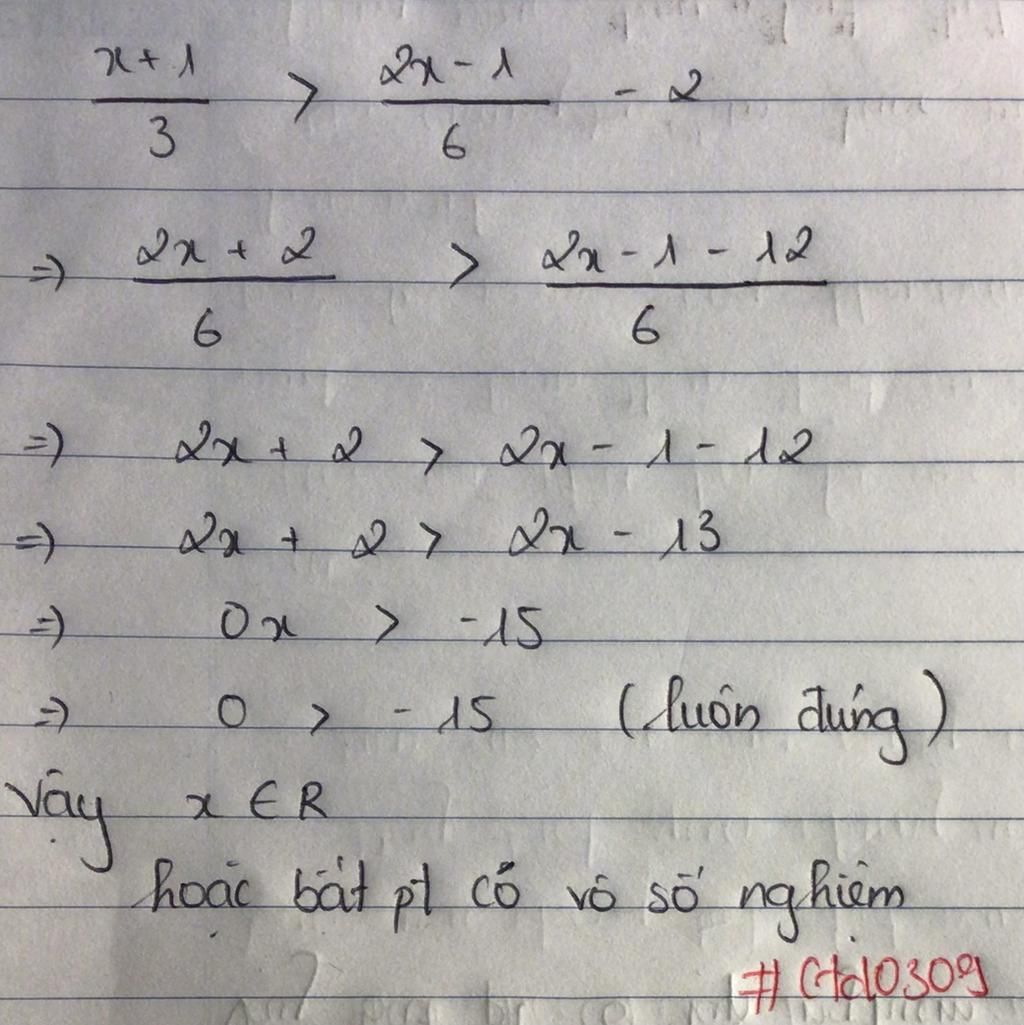 x + 1 / 3 > 2x - 1 / 6 - 2
=> 2x + 2 / 6 > 2x - 1 - 12 / 6
=> 2x + 2 > 2x - 1 - 12
=> 2x + 2 > 2x - 13
=> 0x > -15
=> 0 > -15 (luôn đúng)
Vậy x ∈ R
hoặc bất pt có vô số nghiệm